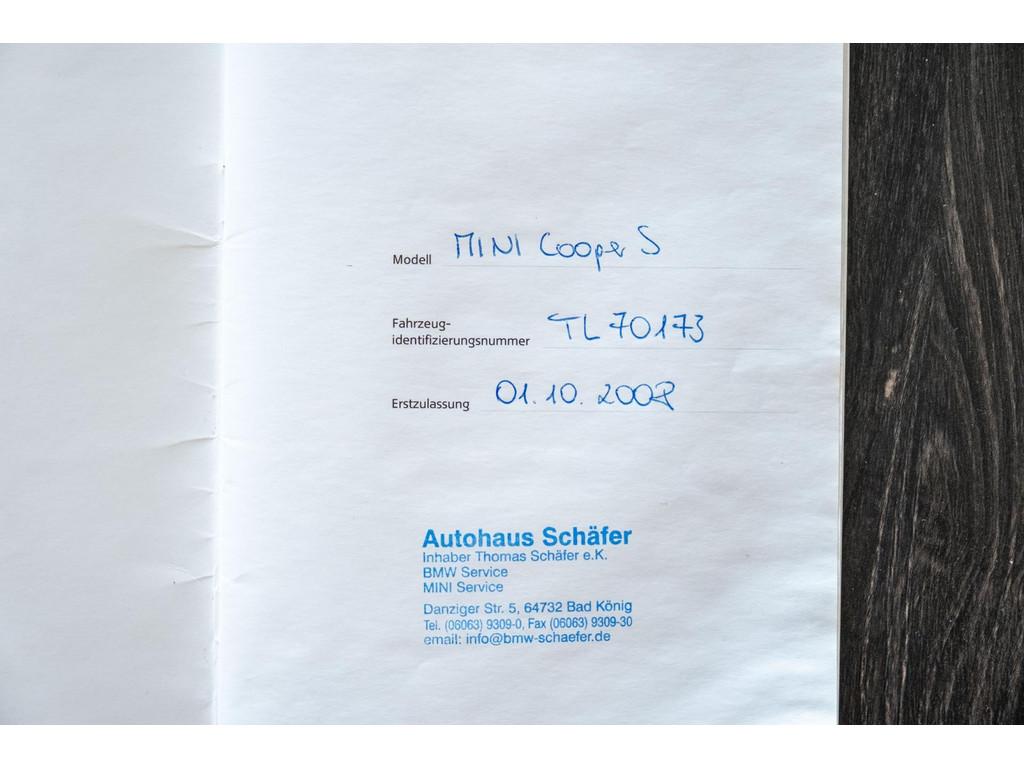 Modell MINI Cooper S
Fahrzeug-
identifizierungsnummer TL 70173
Erstzulassung 01.10.2008
Autohaus Schäfer
Inhaber Thomas Schäfer e.K.
BMW Service
MINI Service
Danziger Str. 5, 64732 Bad König
Tel. (06063) 9309-0, Fax (06063) 9309-30
email: info@bmw-schaefer.de